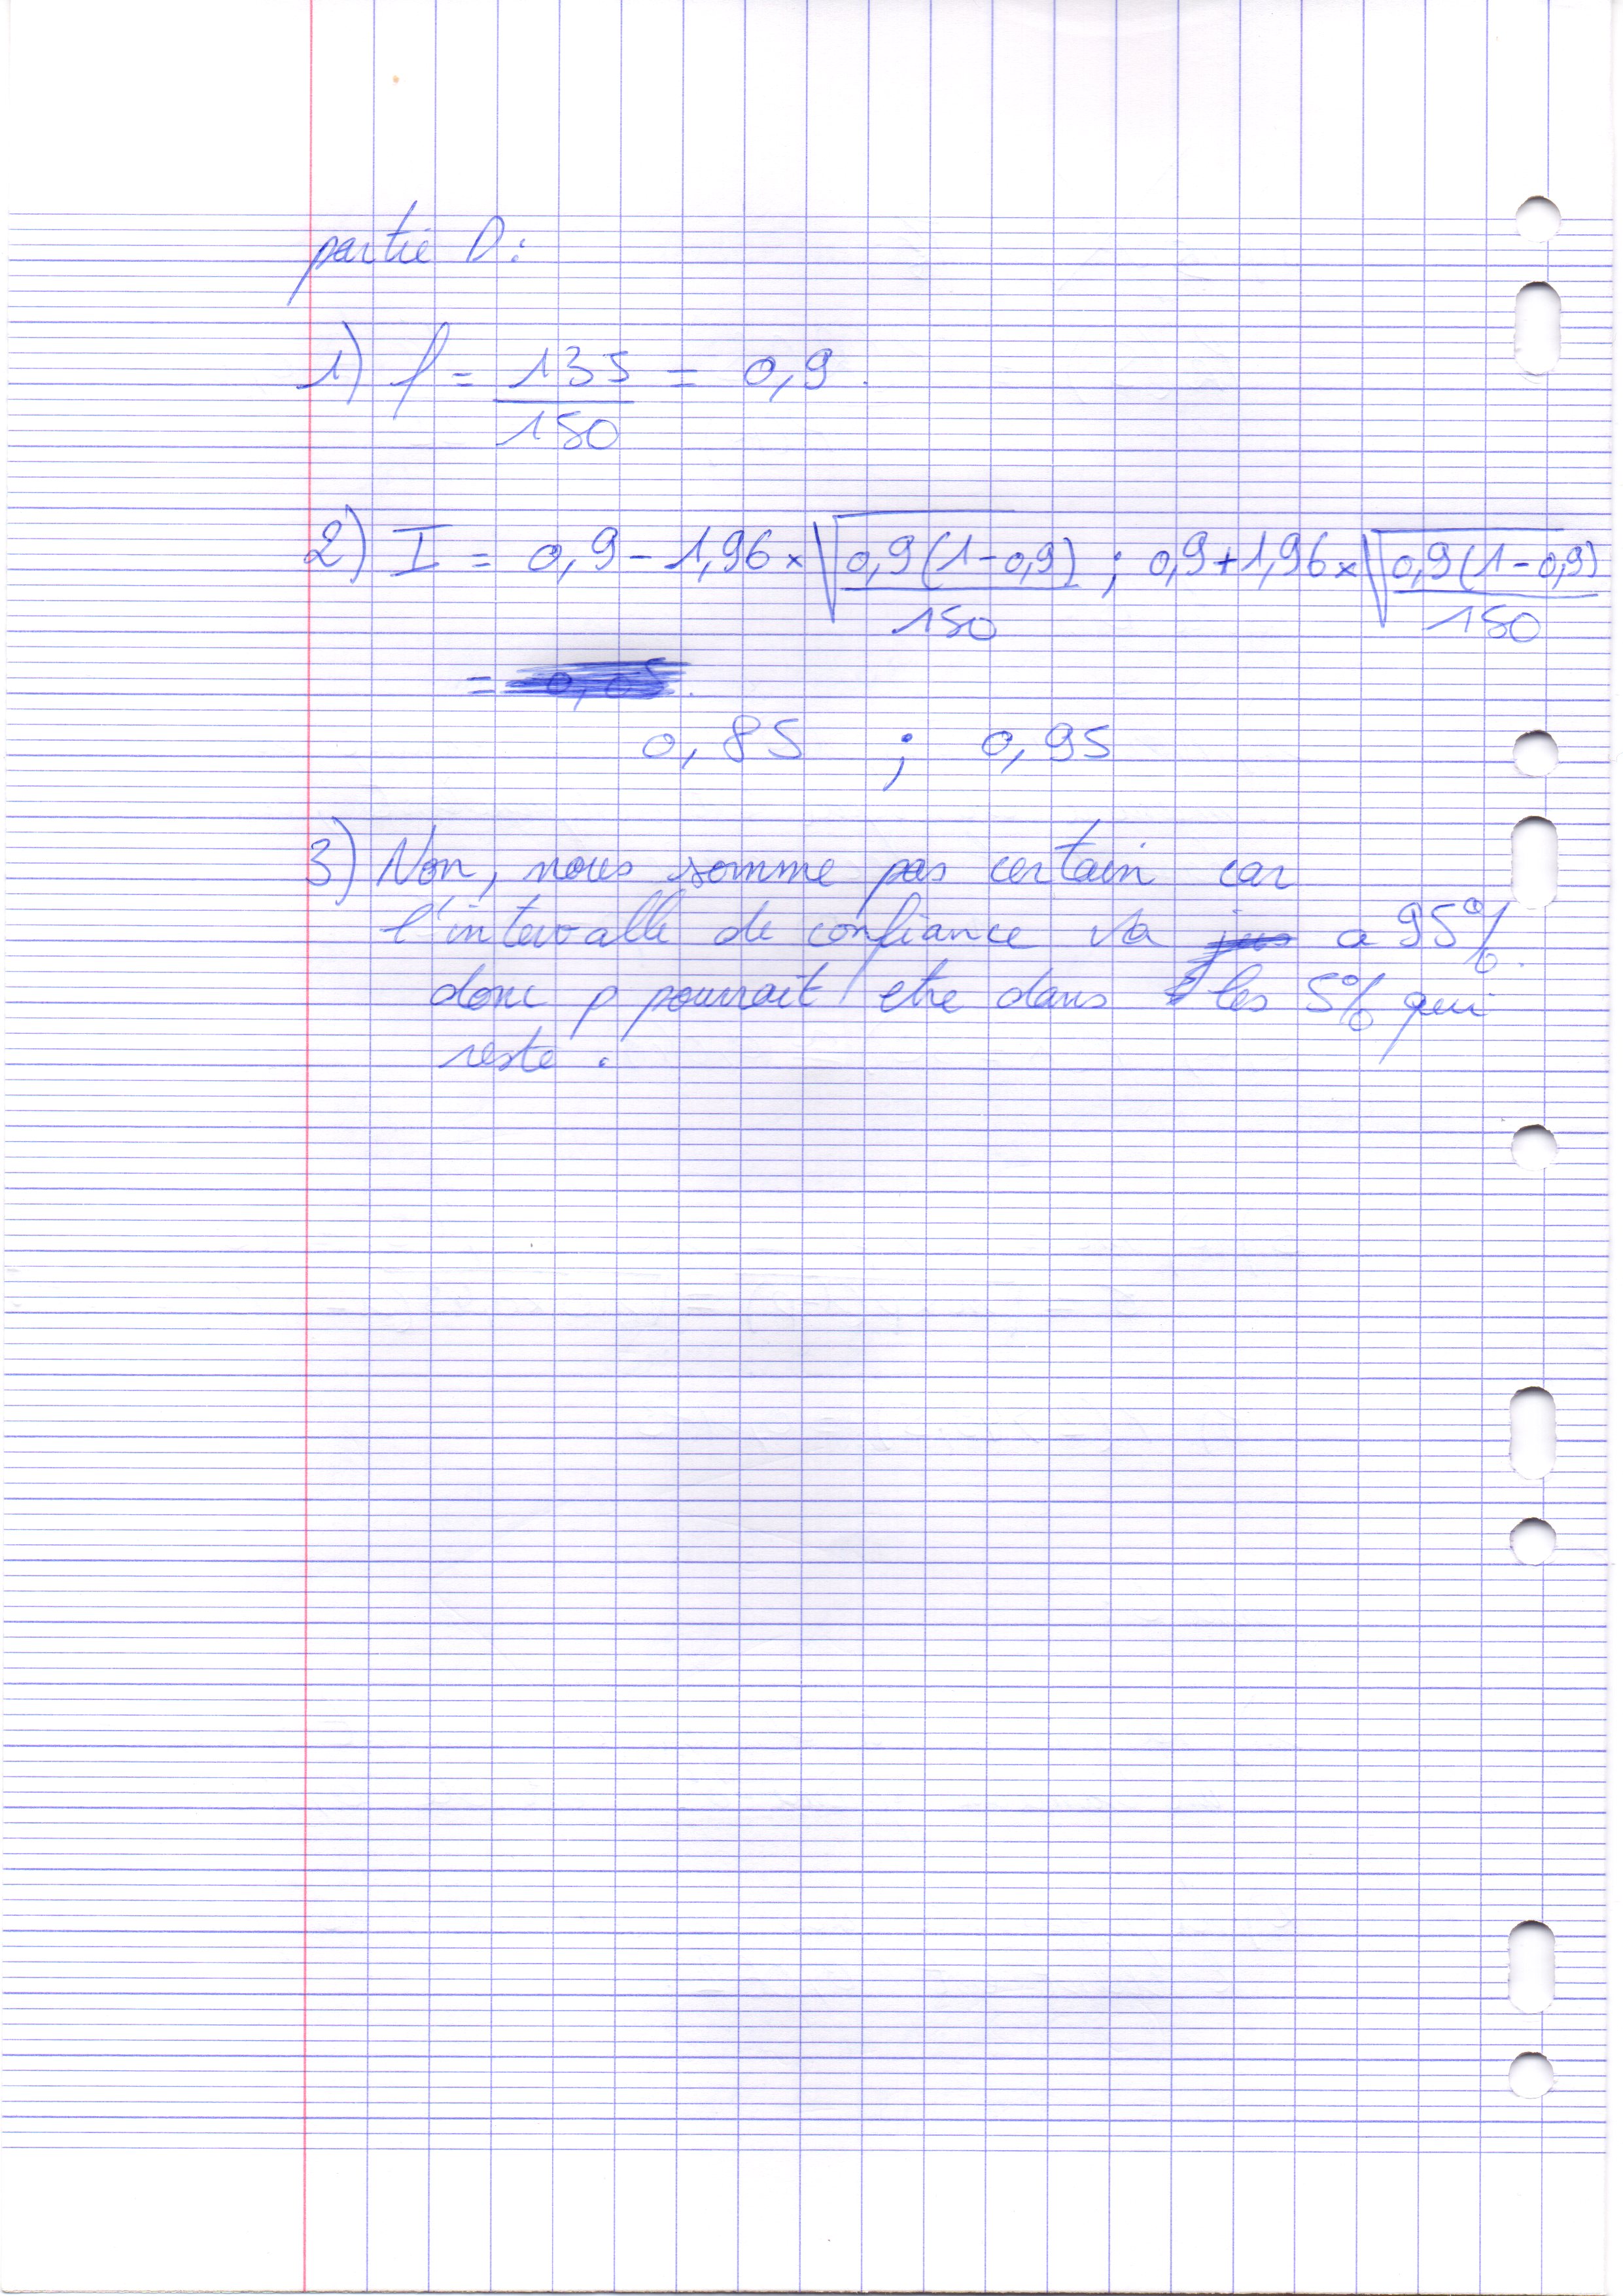 partie D:
1) f = 135/150 = 0,9.
2) I = 0,9 - 1,96 × √(0,9(1-0,9)/150) ; 0,9 + 1,96 × √(0,9(1-0,9)/150)
=
0,85 ; 0,95
3) Non, nous somme pas certain car
l'intervalle de confiance va a 95%.
donc p pourrait etre dans les 5% qui
reste.